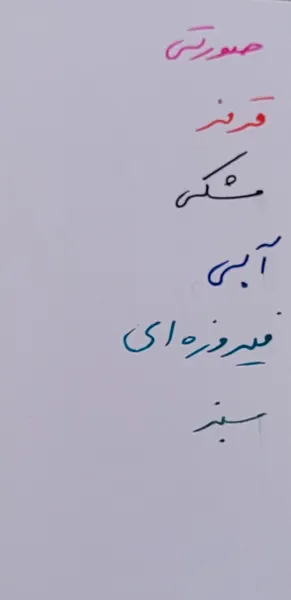 صورتی
قرمز
مشکی
آبی
فیروزه ای
سبز